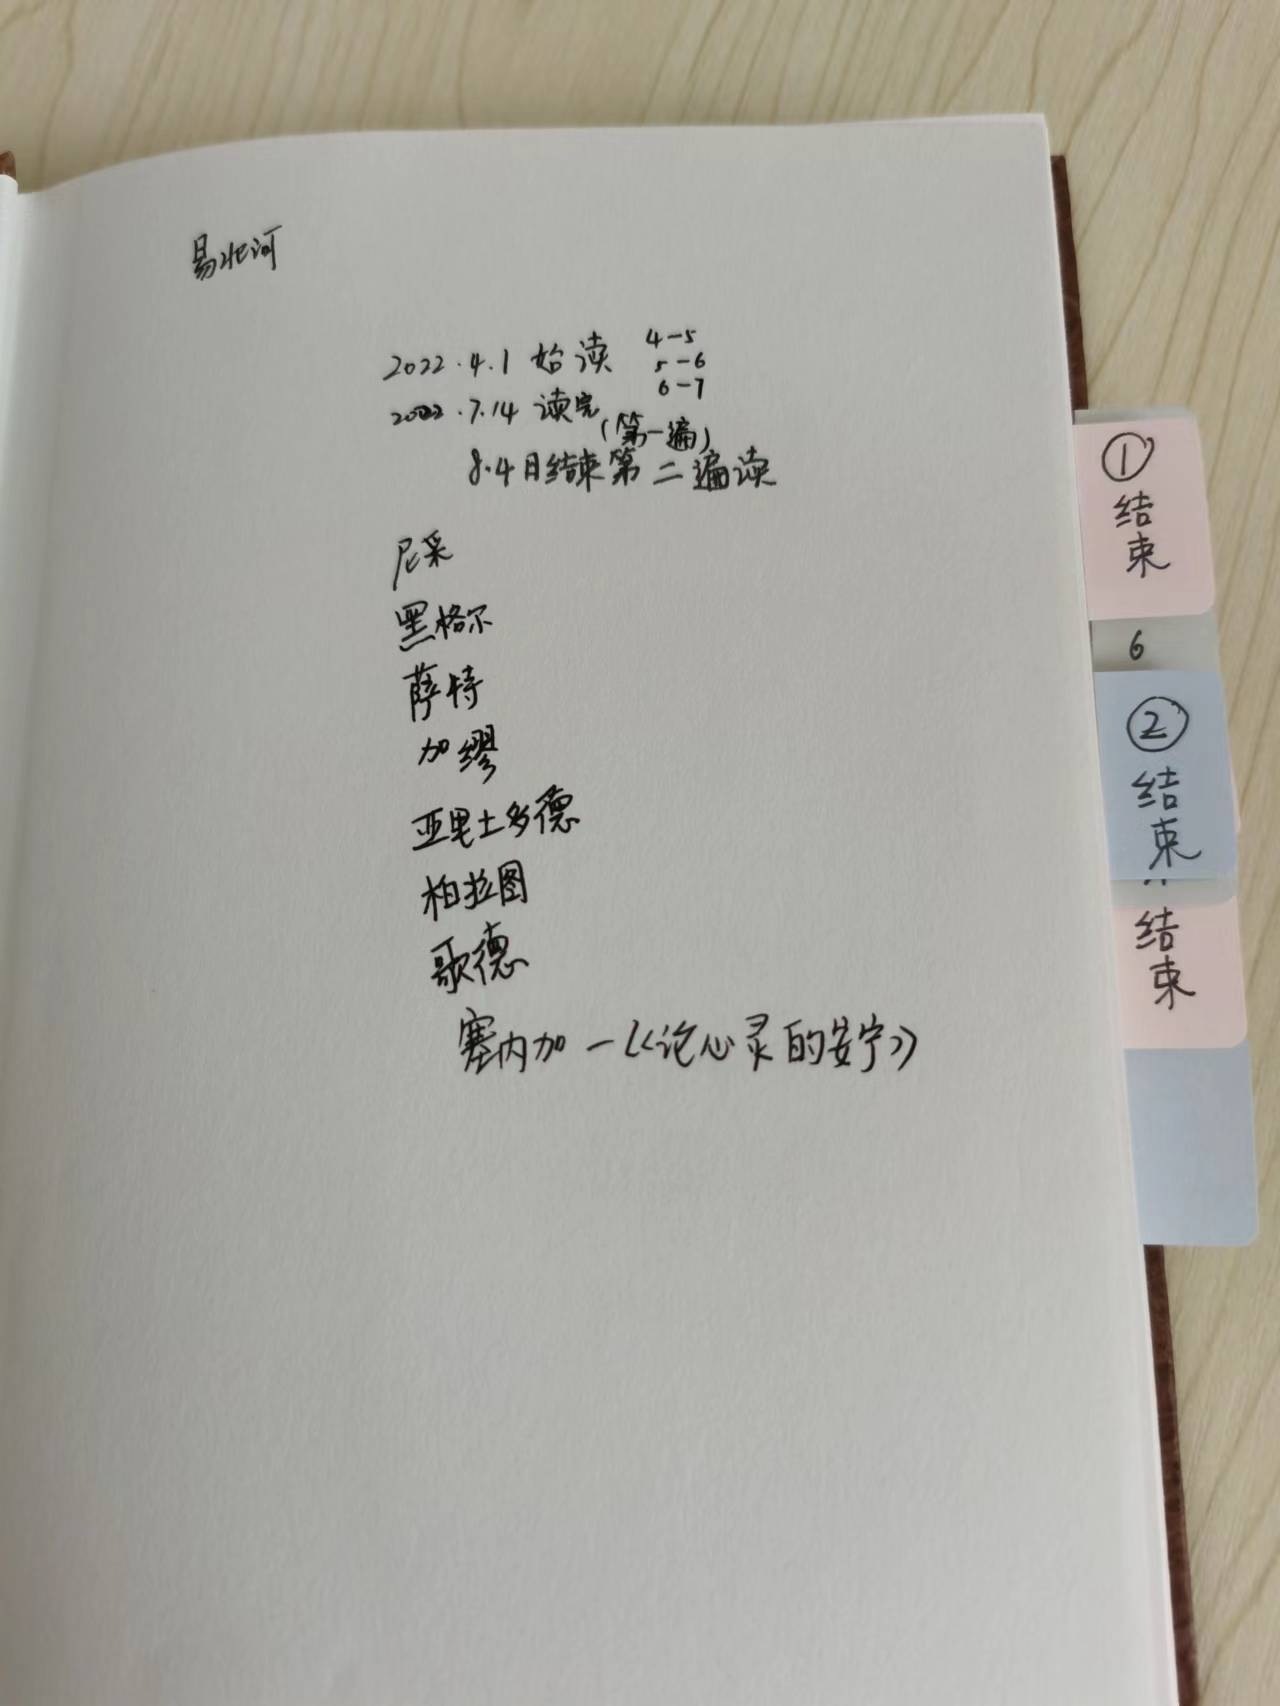 易北河
2022.4.1 始读
4-5
5-6
6-7
2022.7.14 读完
(第一遍)
8.4日结束第二遍读
尼采
黑格尔
萨特
加缪
亚里士多德
柏拉图
歌德
塞内加-《论心灵的安宁》
①
结
束
6
②
结
束
结
束